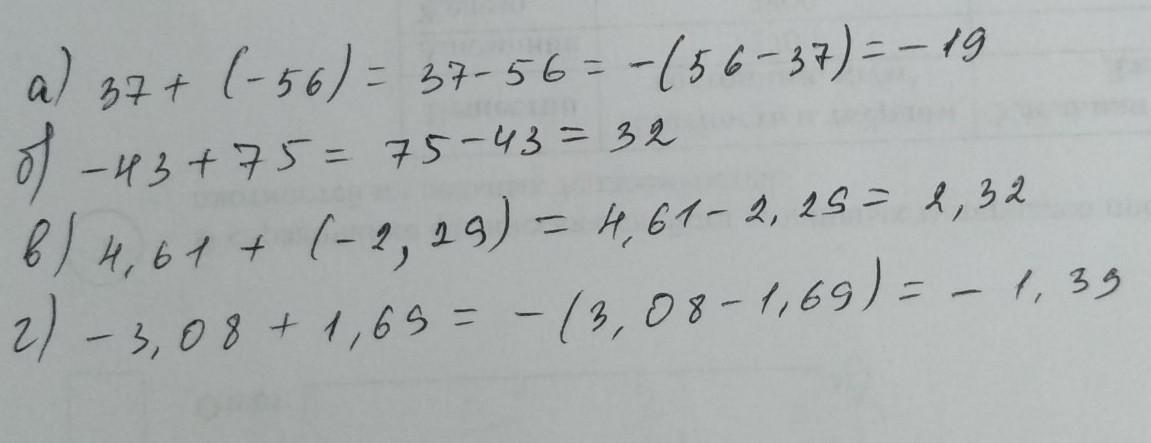 а) 37 + (-56) = 37-56 = -(56-37) = -19
б) -43 + 75 = 75-43 = 32
в) 4,61 + (-2,29) = 4,61-2,29 = 2,32
г) -3,08 + 1,69 = -(3,08-1,69) = -1,39